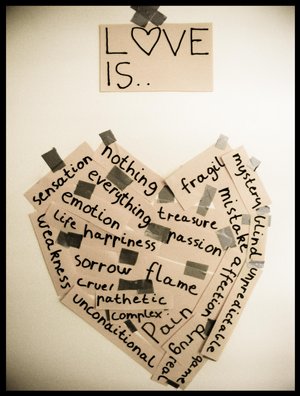 L♡VE
IS..
sensation
nothing
everything
emotion
treasure
fragil
mystery
life
happiness
passion
mistake
blind
weakness
sorrow
flame
affection
unpredictable
cruel
pathetic
complex
pain
drug
real
game
unconditional